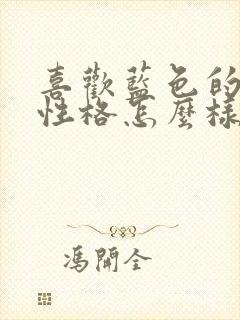 喜歡藍色的
性格怎麼樣
馮開全